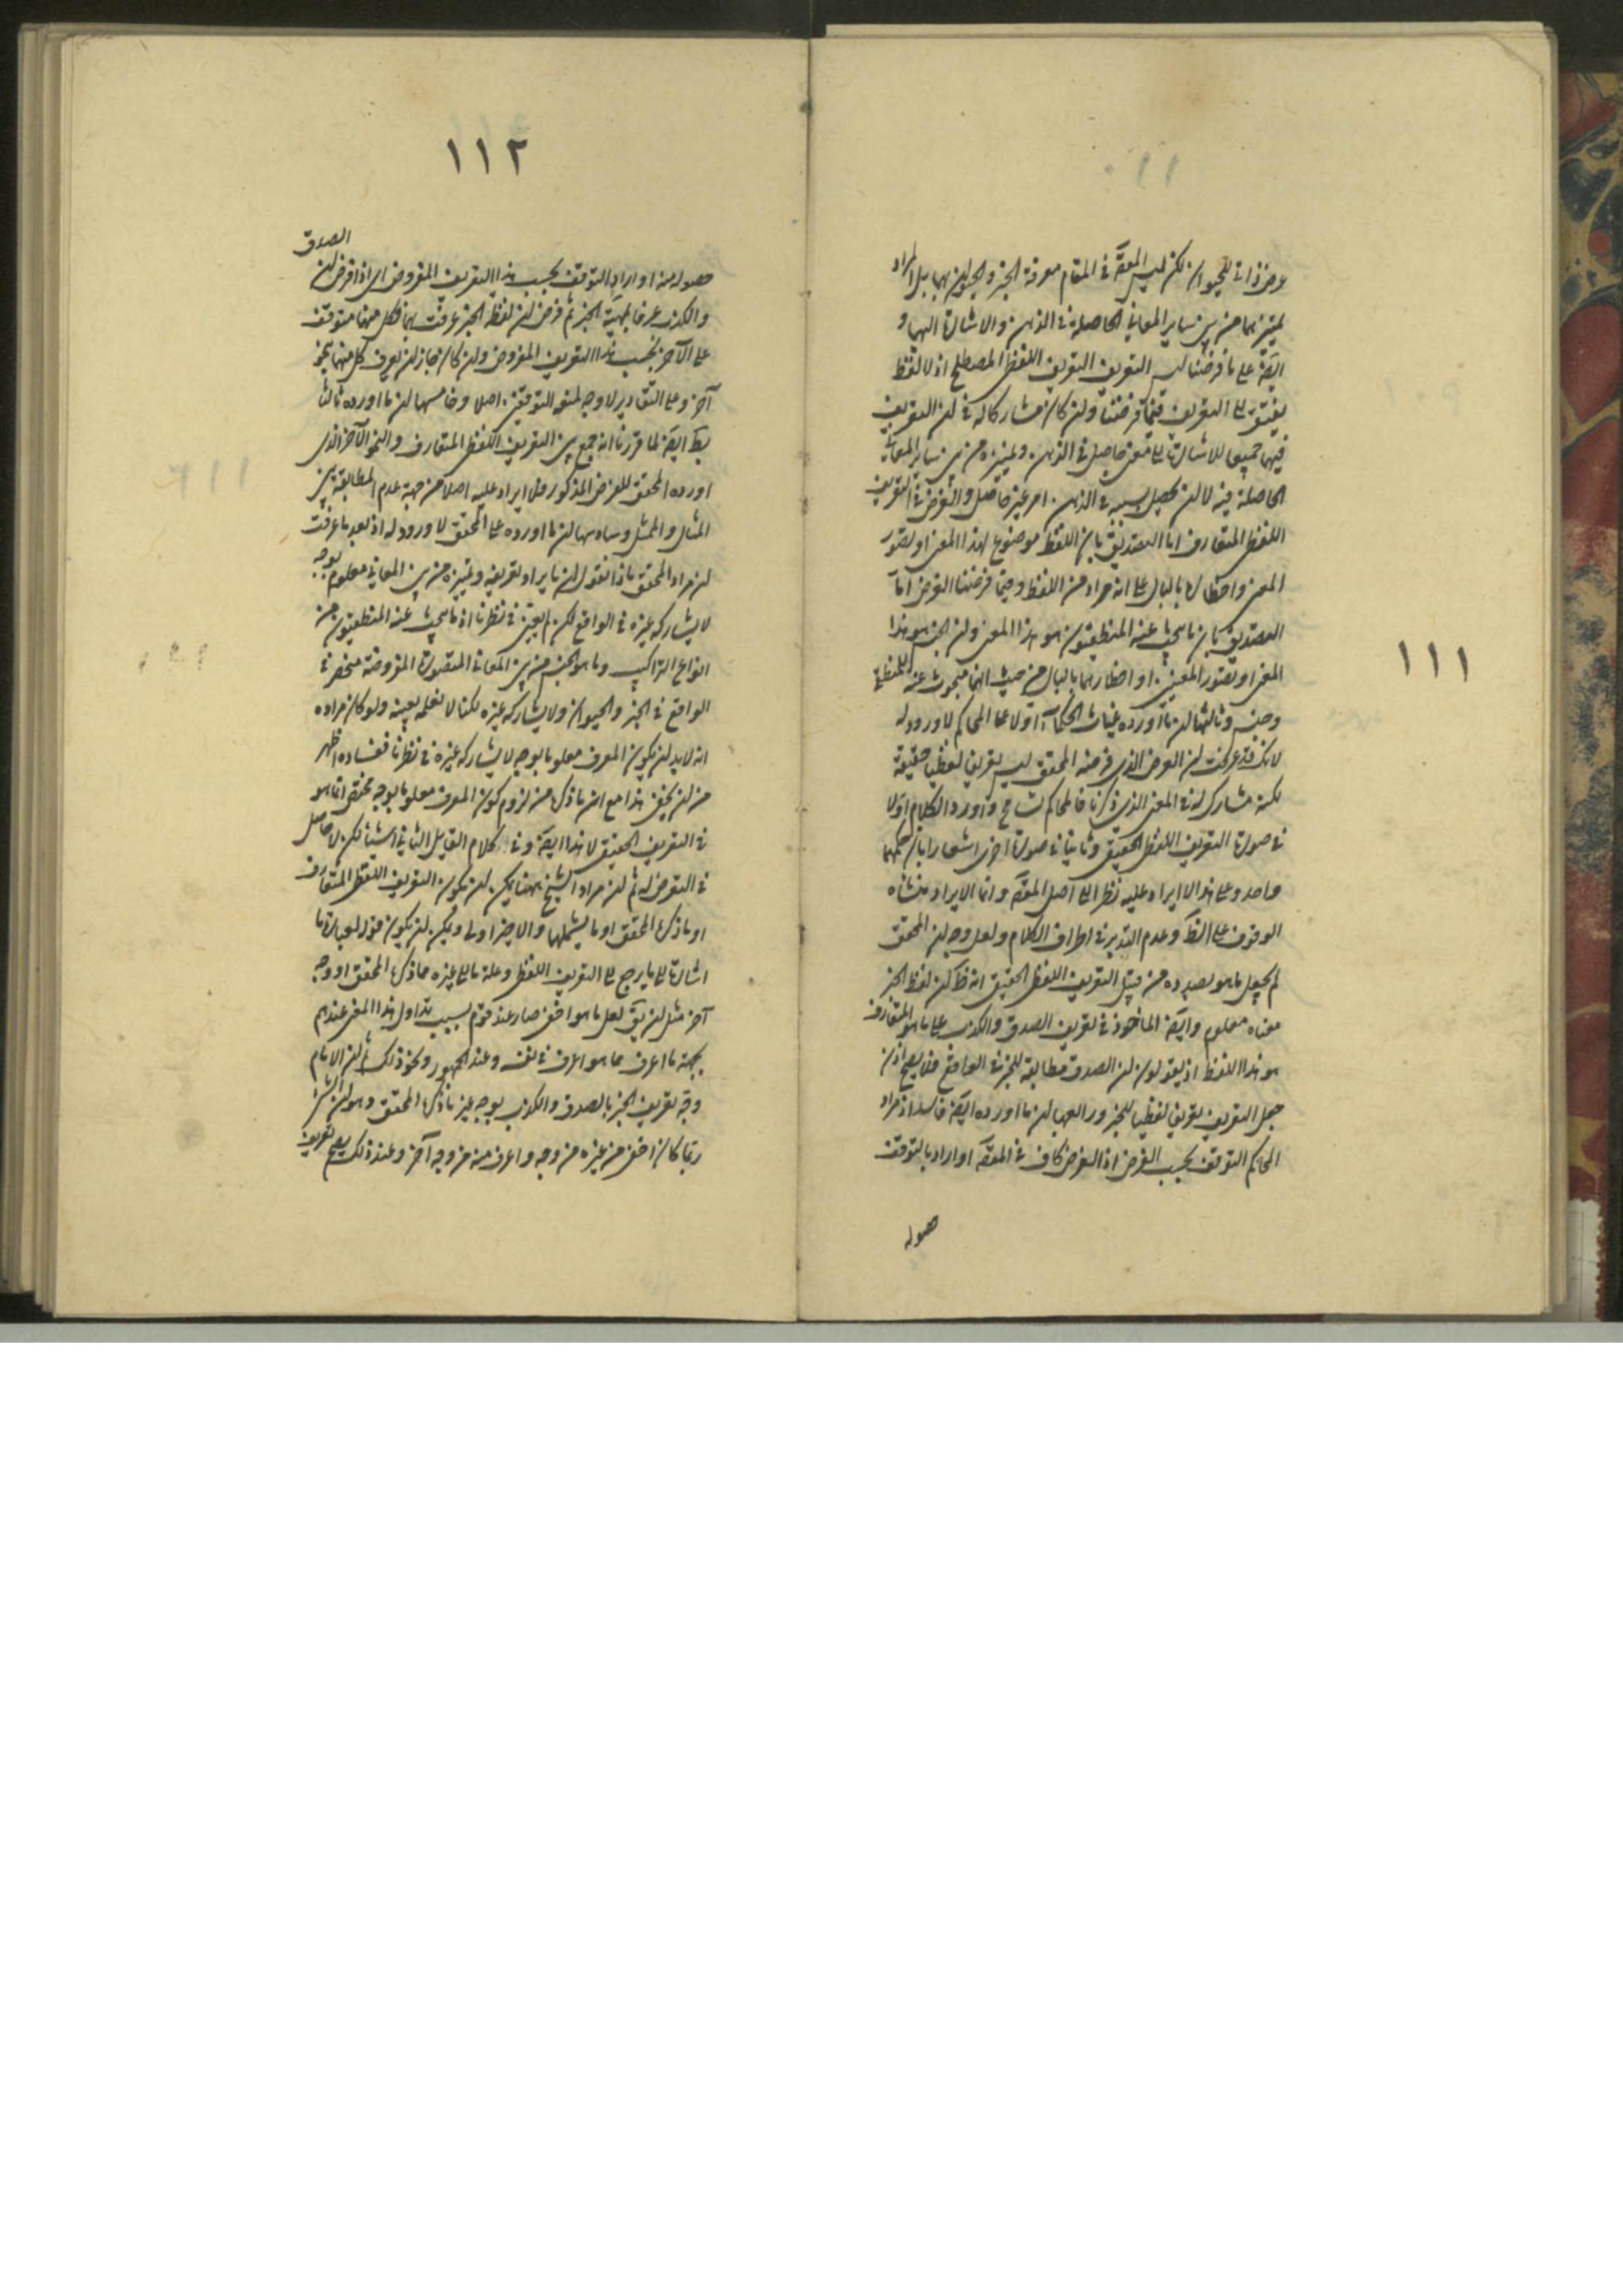 ١١١
عرض ذاتى للحيوان لكن ليس المقصَّ فى المقام معرفة الخبر والحيوان بهما بل المراد
تميزهما من بين ساير المعانى الحاصلة فى الذهن والاشارة اليهما و
ايضَ على ما فرضنا ليس التعريف التعريف اللفظى المصطلح اذ لا لفظ
يفتقر الى التعريف فيما فرضنا وان كان مشاركا له فى ان التعريف
فيهما جميعا للاشارة الى معنى حاصل فى الذهن وتميزه من بين ساير المعانى
الحاصلة فيه لا لان يحصل بسببه فى الذهن امر غير حاصل والغرض فى التعريف
اللفظى المتعارف اما التصديق بان اللفظ موضوع لهذا المعنى او تصور
المعنى واخطاره بالبال على انه مراد من اللفظ وفيما فرضنا الغرض اما
التصديق بان ما يبحث عنه المنطقيون هو هذا المعنى وان الخبر هو هذا
المعنى او تصور المعنيين او اخطارهما بالبال من حيث انهما مبحوث عنه للمنطقى
وجنس وثالثها ان ما اورده غياث الحكماء اولا على المحاكم لا ورود له
لانك قد عرفت ان الغرض الذى فرضه المحقق ليس تعريفا لفظيا حقيقة
لكنه مشارك له فى المعنى الذى ذكرنا فالمحاكم تسامح واورد الكلام اولا
فى صورة التعريف اللفظى الحقيقى وثانيا فى صورة اخرى اشعارا بان حكمهما
واحد وعلى هذا لا ايراد عليه نظرا الى اصل المقصَ وانما الايراد منشاه
الوقوف على الظَ وعدم التدبر فى اطراف الكلام ولعل وجه ان المحقق
لم يجعل ما هو بصدده من قبيل التعريف اللفظى الحقيقى انه ظَ ان لفظ الخبر
معناه معلوم وايضَ الماخوذ فى تعريف الصدق والكذب على ما هو المتعارف
هو هذا اللفظ اذ يقولون ان الصدق مطابقة الخبر فى الواقع فلا يصح اذن
جعل التعريف تعريفا لفظيا للخبر ورابعها ان ما اورده ايضَ فاسد اذ مراد
المحاكم التوقف بحسب الفرض اذ الفرض كاف فى المقصَ او اراد بالتوقف
حصوله
١١٢
حصوله منه او اراد التوقف بحسب هذا التعريف المفروض اى اذا فرض ان الصدق
والكذب عرفا بمهية الخبر ثم فرض ان لفظ الخبر عرفت بهما فكل منهما متوقف
على الآخر بحسب هذا التعريف المفروض وان كان فجاز ان يعرف كل منهما بنحو
آخر وعلى التقادير لا وجه لمنع التوقفين اصلا وخامسها ان ما اورده ثالثا
بطَ ايضَ لما قررنا انه جمع بين التعريف اللفظى المتعارف والنحو الآخر الذى
اورده المحقق للغرض المذكور فلا ايراد عليه اصلا من جهة عدم المطابقة بين
المثال والممثل وسادسها ان ما اورده على المحقق لا ورود له اذ بعد ما عرفت
ان مراد المحقق ماذا نقول ان ما يراد تعريفه وتميزه من بين المعانى معلوم بوجه
لا يشاركه غيره فى الواقع لكن لم يتعين فى نظرنا اذ ما يبحث عنه المنطقيون من
انواع التراكيب وما هو الجنس من بين المعانى المتصورة المفروضة منحصر فى
الواقع فى الخبر والحيوان ولا يشاركه غيره لكنا لا نعلمه بعينه ولو كان مراده
انه لا بد ان يكون المعرف معلوما بوجه لا يشاركه غيره فى نظرنا ففساده اظهر
من ان يخفى هذا مع ان ما ذكره من لزوم كون المعرف معلوما بوجه مختص انما هو
فى التعريف الحقيقى لا هذا ايضَ وفى كلام القايل الثانى اشياء لكن لا حاصل
فى التعرض له ثم ان مراد الشيخ ههنا يمكن ان يكون التعريف اللفظى المتعارف
او ما ذكره المحقق او ما يشملهما والاخير اولى ويمكن ان يكون قوله لعبارة ما
اشارة الى ما يرجع الى التعريف اللفظى وعلة ما الى غيره مما ذكره المحقق او وجه
آخر مثل ان يقَ لعل ما هو اخفى صار عند قوم بسبب تداول هذا المعنى عندهم
بجهة ما اعرف مما هو اعرف فى نفسه وعند الجمهور ونحو ذلك ثم ان الامام
وجّه تعريف الخبر بالصدق والكذب بوجه غير ما ذكره المحقق وهو ان الشئ
ربما كان اخفى من غيره من وجه واعرف منه من وجه آخر وعند ذلك يصح تعريف